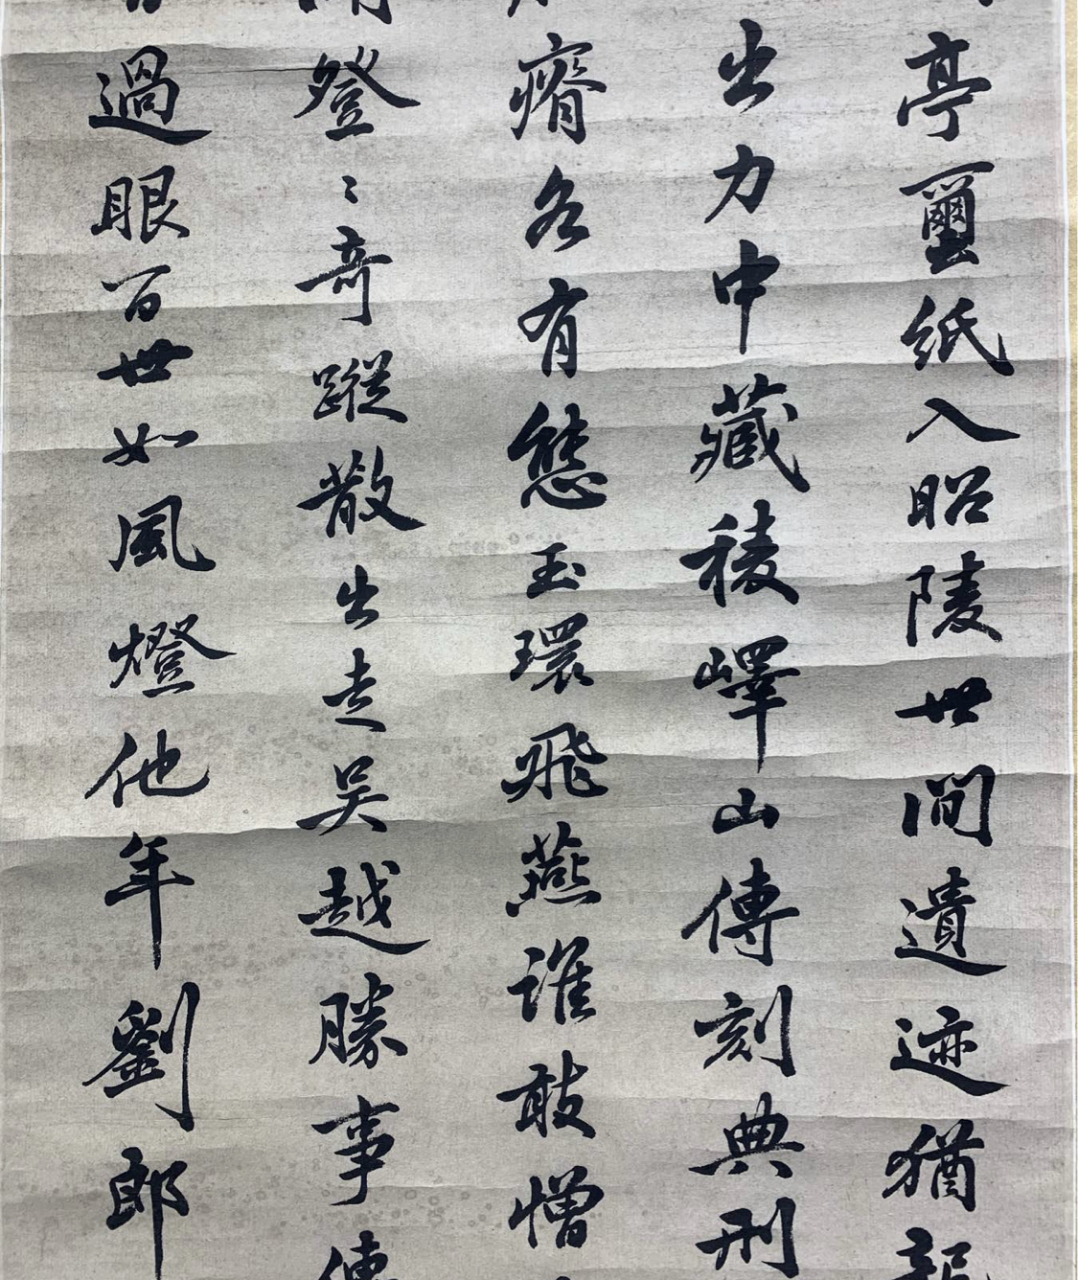 亭璽紙入昭陵世間遺迹猶
出力中藏稜嶧山傳刻典刑
瘠各有態玉環飛燕誰敢憎
登〻奇蹤散出走吳越勝事傳
過眼百世如風燈他年劉郎